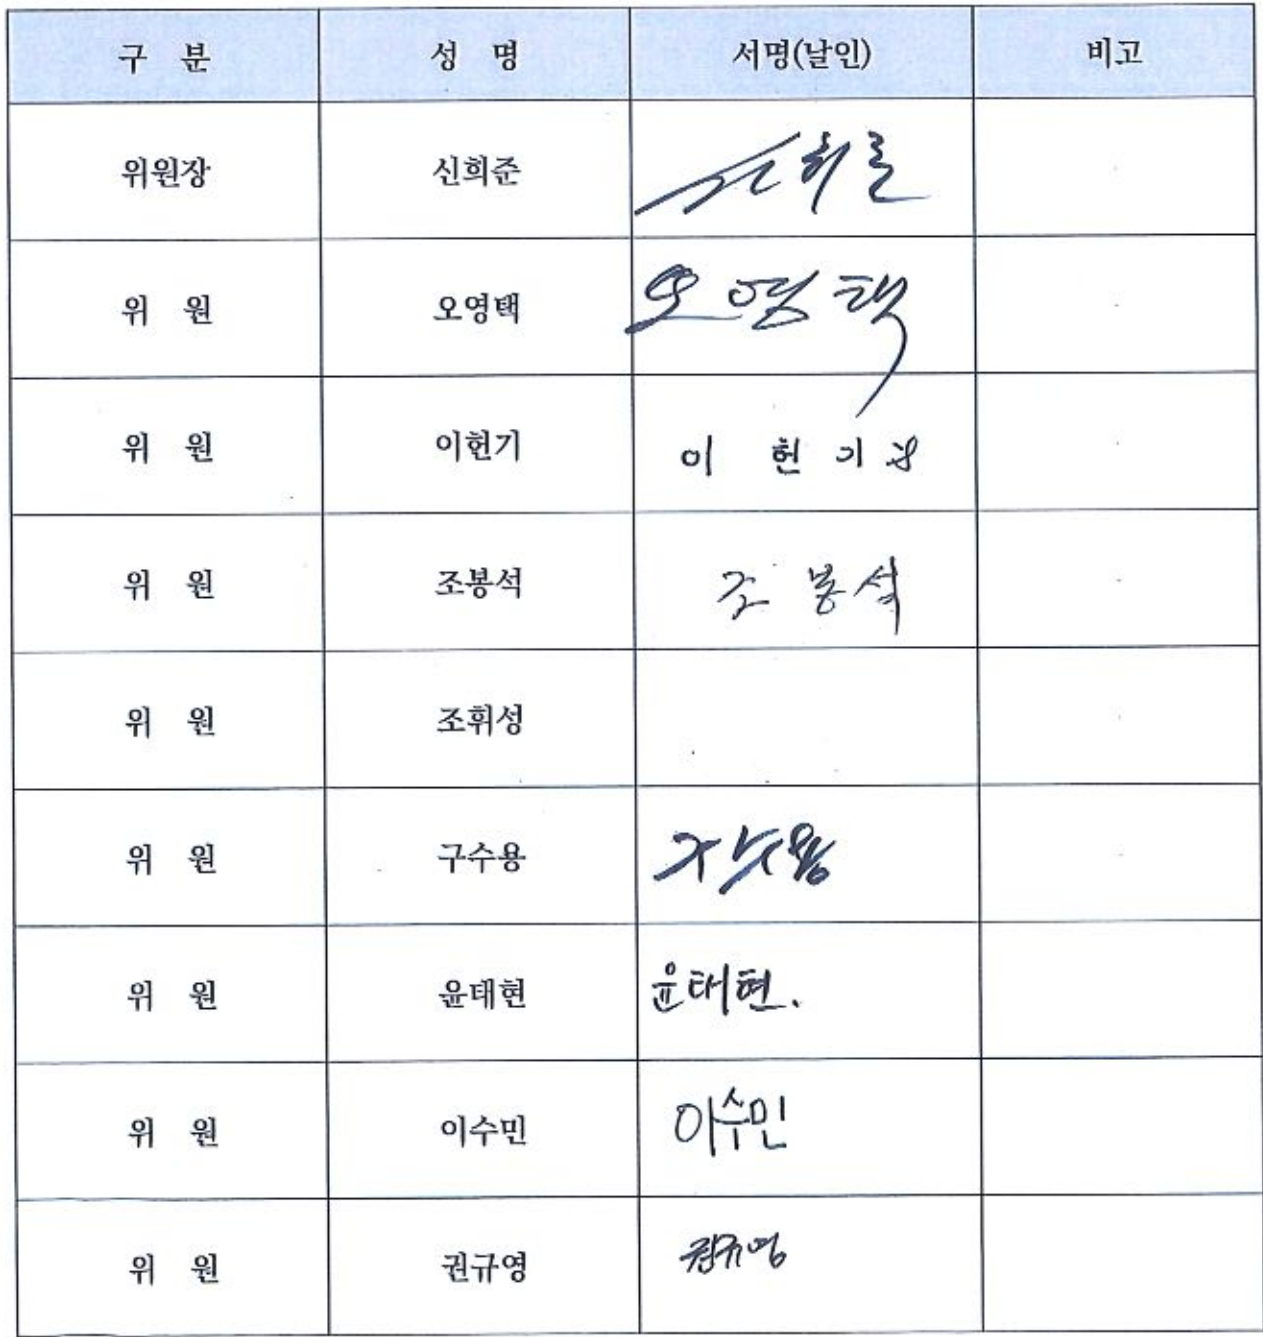 구 분 성 명 서명(날인) 비고
위원장 신희준 신희준
위 원 오영택 오영택
위 원 이헌기 이 헌 기
위 원 조봉석 조 봉석
위 원 조휘성
위 원 구수용 구수용
위 원 윤태현 윤태현.
위 원 이수민 이수민
위 원 권규영 권규영